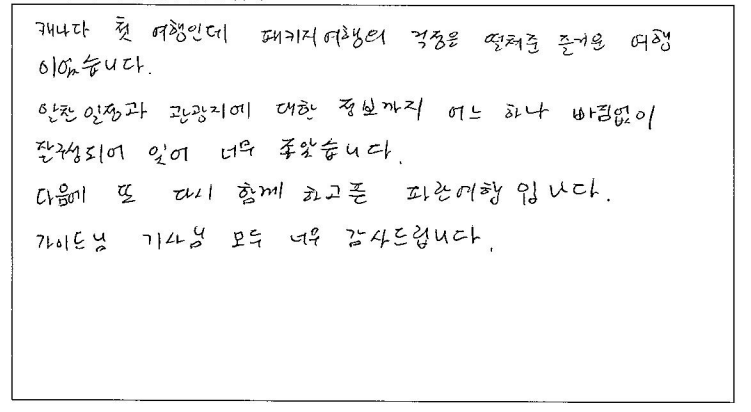 캐나다 첫 여행인데 패키지여행의 걱정은 떨쳐준 즐거운 여행
이였습니다.
알찬일정과 관광지에 대한 정보까지 어느 하나 빠짐없이
잘구성되어 있어 너무 좋았습니다.
다음에 또 다시 함께 하고픈 파란여행 입니다.
가이드님 기사님 모두 너무 감사드립니다.